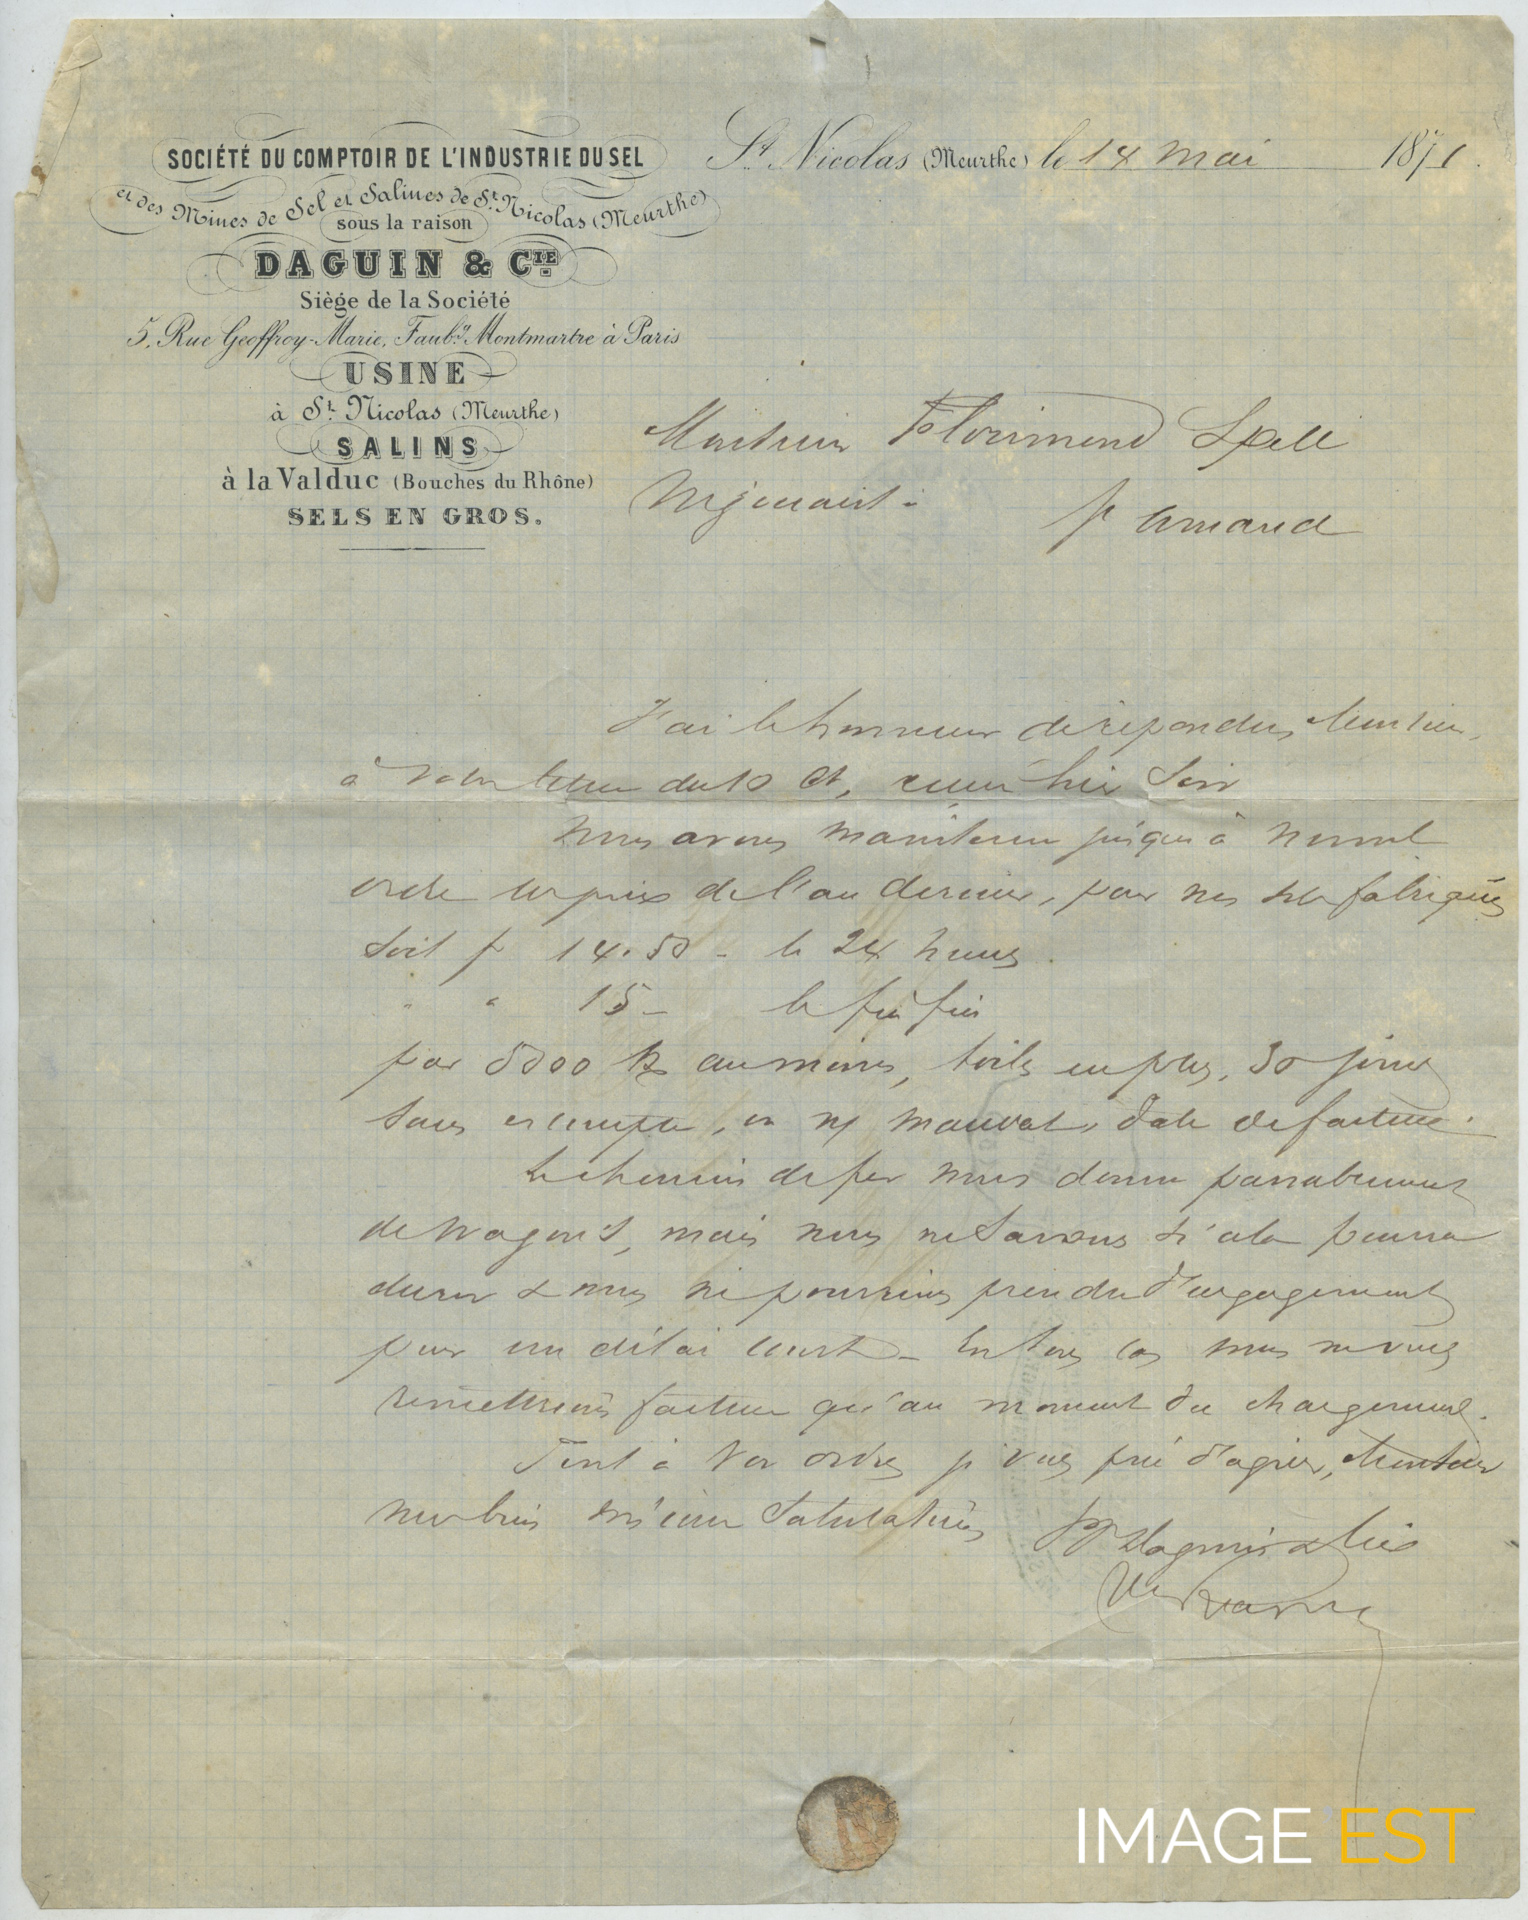 SOCIÉTÉ DU COMPTOIR DE L'INDUSTRIE DU SEL
et des Mines de Sel et Salines de St. Nicolas (Meurthe)
sous la raison
DAGUIN & CIE
Siège de la Société
5, Rue Geoffroy-Marie, Faubg. Montmartre à Paris
USINE
à St. Nicolas (Meurthe)
SALINS
à la Valduc (Bouches du Rhône)
SELS EN GROS.
St. Nicolas (Meurthe) le 14 mai 1871.
Monsieur Florimond
Négociant à
St Amand
J'ai l'honneur de répondre, Monsieur,
à votre lettre du 10 Ct, reçue hier soir
Nous avons maintenu jusqu'à nouvel
ordre les prix de l'an dernier, pour nos sels fabriqués
soit f 14.50 - le 24 heures.
" " 15 - le fin fin
par 5000 K au moins, toiles en plus, 30 jours
sans escompte, en n/ mandat, date de facture.
Le chemin de fer nous donne passablement
de wagons, mais nous ne savons si cela pourra
durer & nous ne pourrions prendre d'engagement
pour un délai court - En tous cas nous ne vous
remettrons facture qu'au moment du chargement.
Tout à vos ordres je vous prie d'agréer, Monsieur
nos bien sincères salutations
PP Daguin & Cie
IMAGE'EST